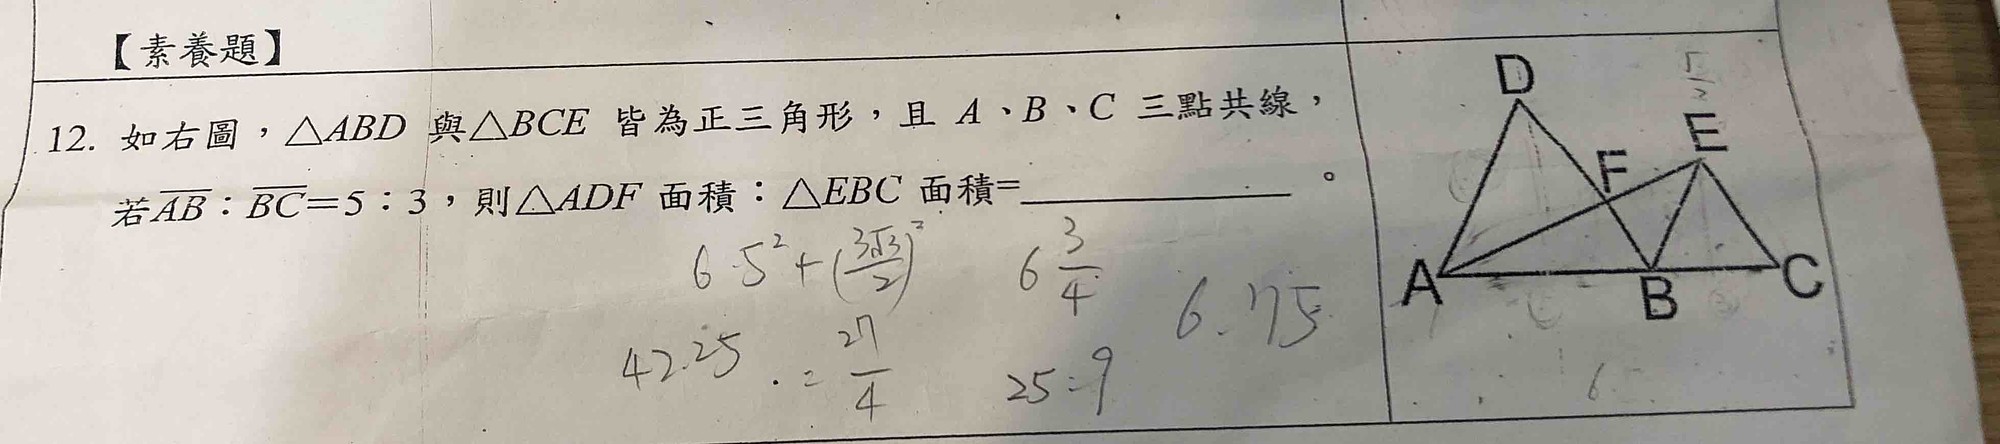 【素養題】
12. 如右圖，△ABD 與△BCE 皆為正三角形，且 A、B、C 三點共線，
若AB：BC=5：3，則△ADF 面積：△EBC 面積=＿＿＿＿＿＿。
6.5²+(3√3/2)²
6 3/4
6.75
42.25
= 27/4
25:9
D
E
F
A
B
C